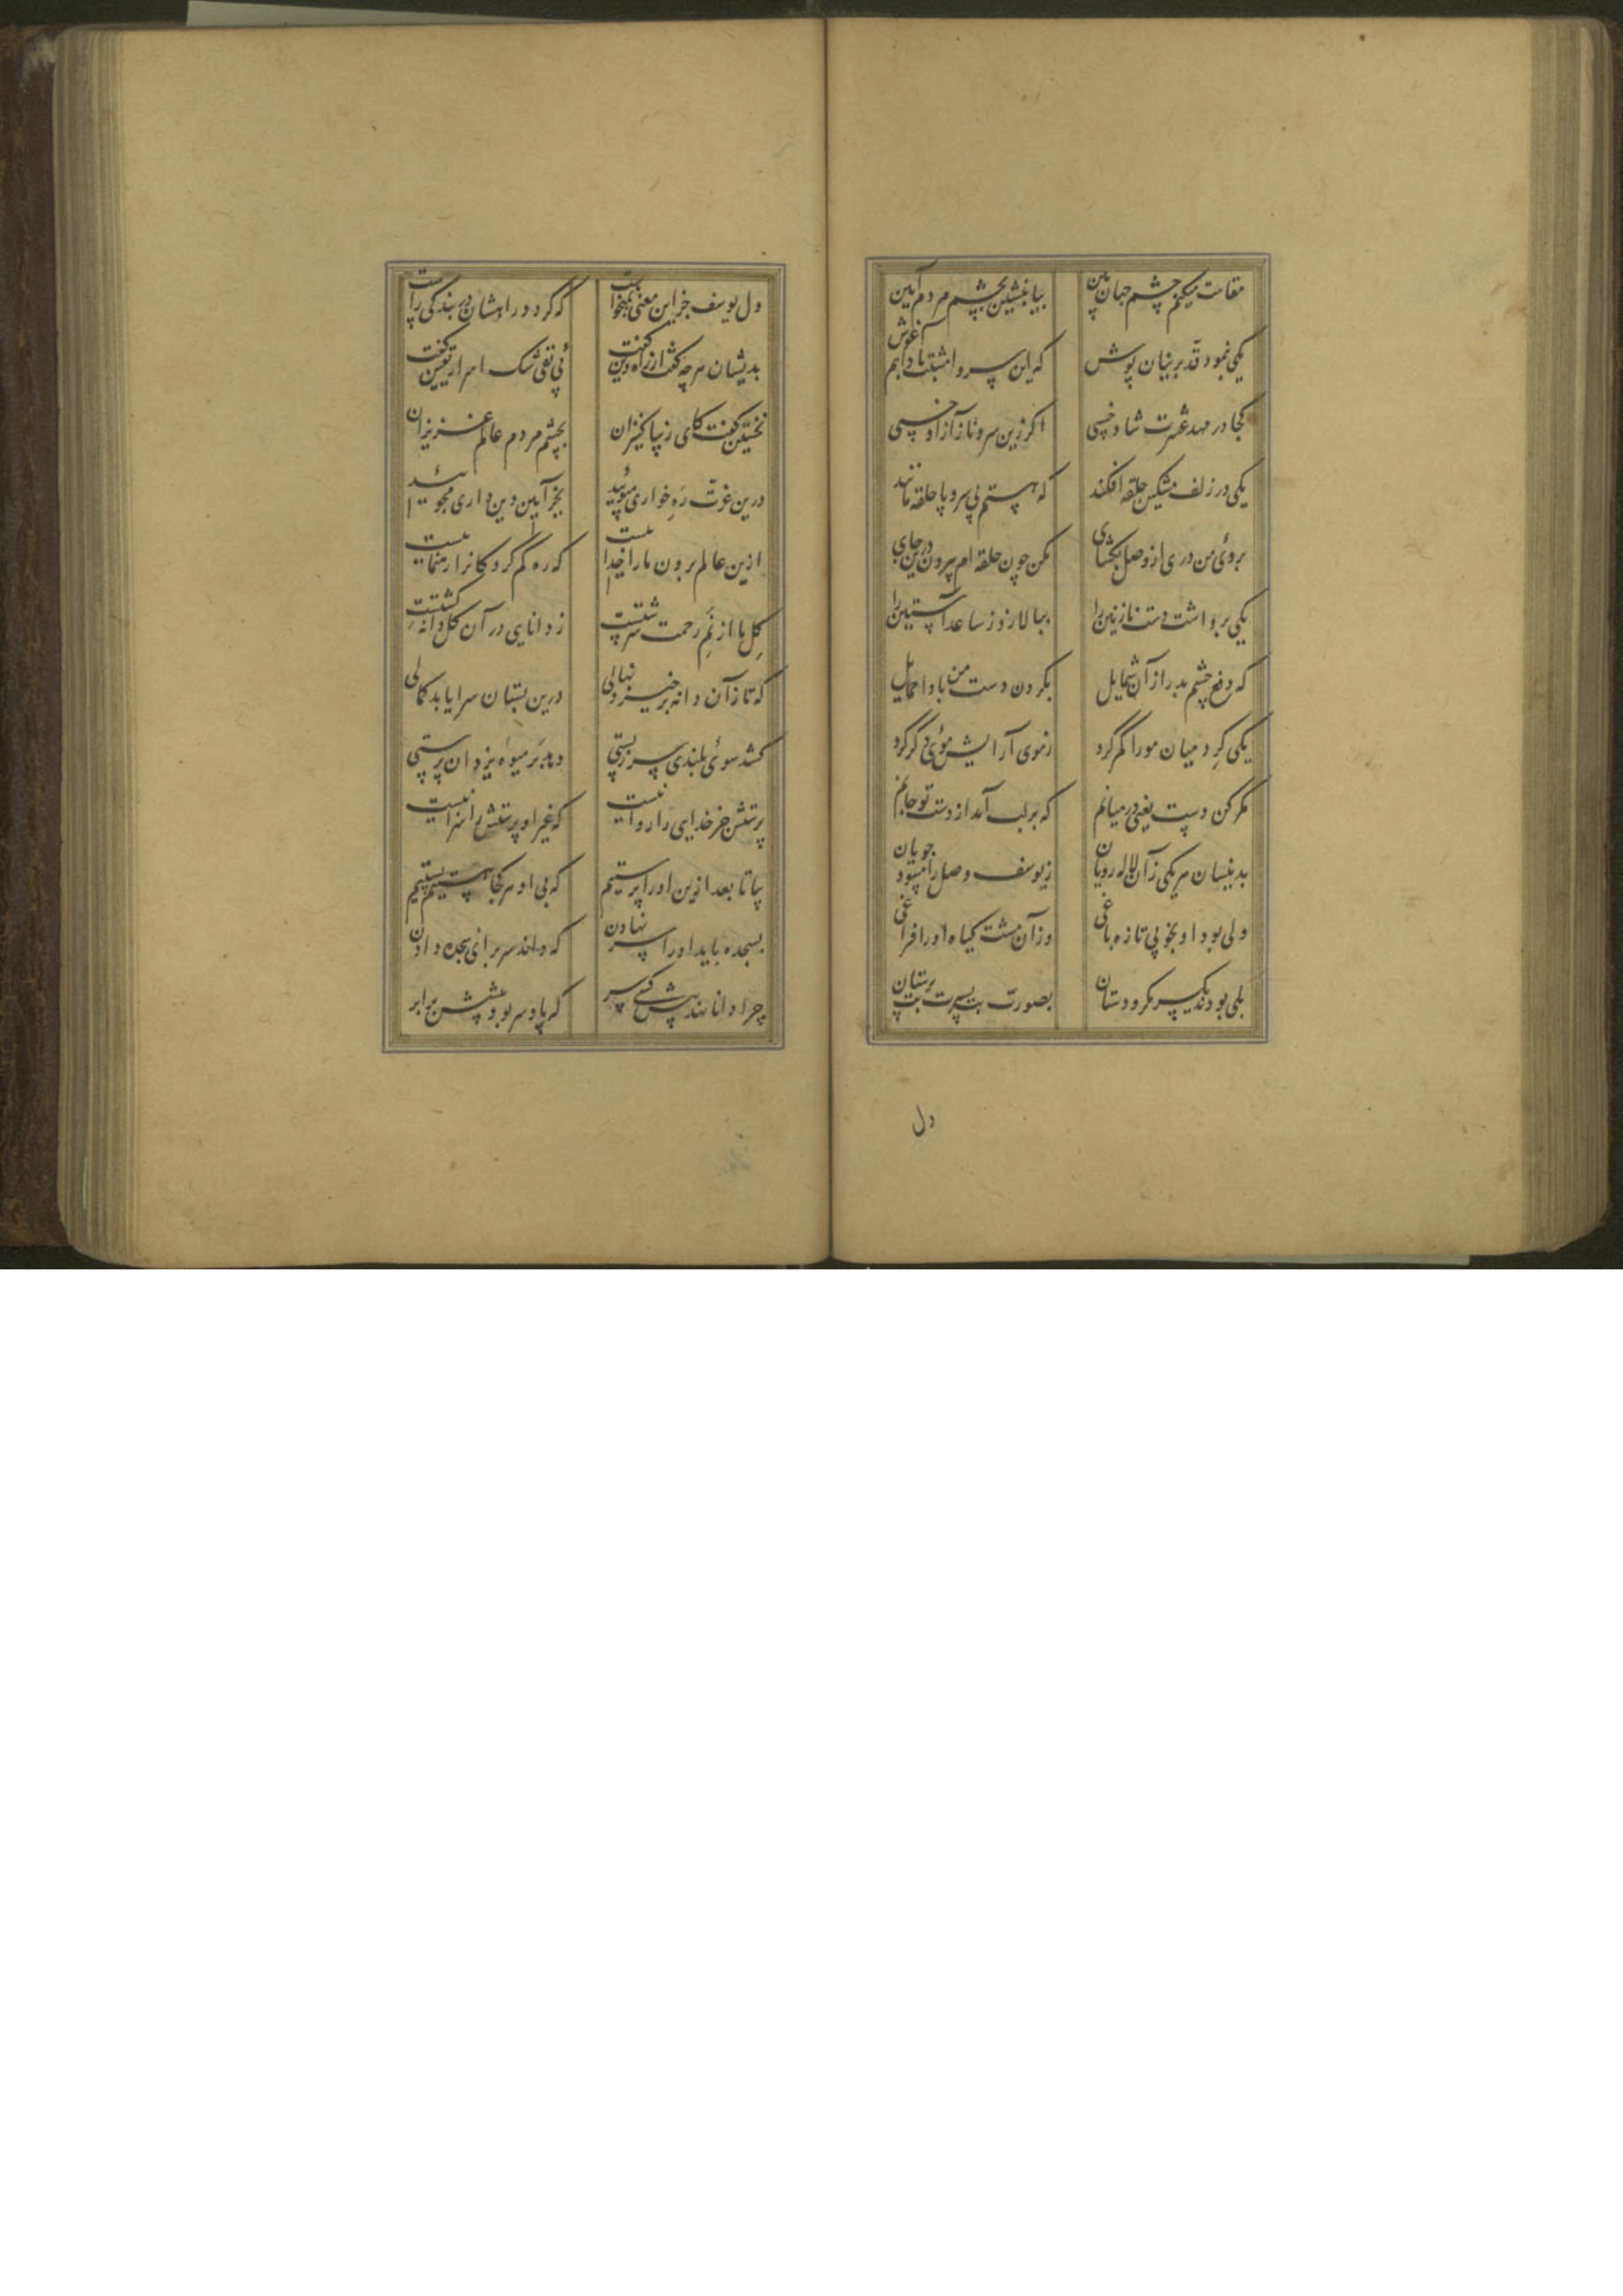 مقامت میکنم چشم جهان بین بیا بنشین بچشم مردم آیین
یکی بنمود قد پرنیان پوش که این سرو امشبت بادا هم آغوش
کجا در مهد عشرت شاد خسپی اگر زین سرو ناز آزاد خسپی
یکی در زلف مشکین حلقه افکند که هستم بی سر و پا حلقه مانند
بروی من دری از وصل بکشای مکن چون حلقه ام بیرون درین جای
یکی برداشت دست نازنین را ببالا زد ز ساعد آستین را
که دفع چشم بد را ز آن شمایل بکردن دست من بادا حمایل
یکی کرد میان مو را کمر کرد ز موی آرایش موی دکر کرد
کمر کن دست یعنی در میانم که بر لب آمد از دست تو جانم
بدینسان هر یکی زآن لاله رویان ز یوسف وصل را میبود جویان
ولی بود او بخوبی تازه باغی وزآن مشت کیاه او را فراغی
بلی بودند یکسر مکر و دستان بصورت بت بسیرت بت پرستان
دل
دل یوسف جز این معنی نمیخواست که کردد راهشان در بندکی راست
بدیشان هر چه کفت از راه دین کفت پی نفی شک اسرار یقین کفت
نخستین کفت کای زیبا کنیزان بچشم مردم عالم عزیزان
درین عزت ره خواری مپویید بجز آیین دین داری مجویید
ازین عالم برون ما را خداییست که ره کم کرد کانرا رهنماییست
کل ما از نم رحمت سرشتست ز دانایی در آن کل دانه کشتست
که تا زآن دانه برخیزد نهالی درین بستان سرا یابد کمالی
کشد سوی بلندی سر ز پستی دهد بر میوه یزدان پرستی
پرستش جز خدایی را روا نیست که غیر او پرستش را سزا نیست
بیا تا بعد ازین او را پرستیم که بی او هر کجا هستیم پستیم
بسجده باید او را سر نهادن که داند سر برای سجده دادن
چرا دانا نهد پیش کسی سر که پا و سر بود پیشش برابر